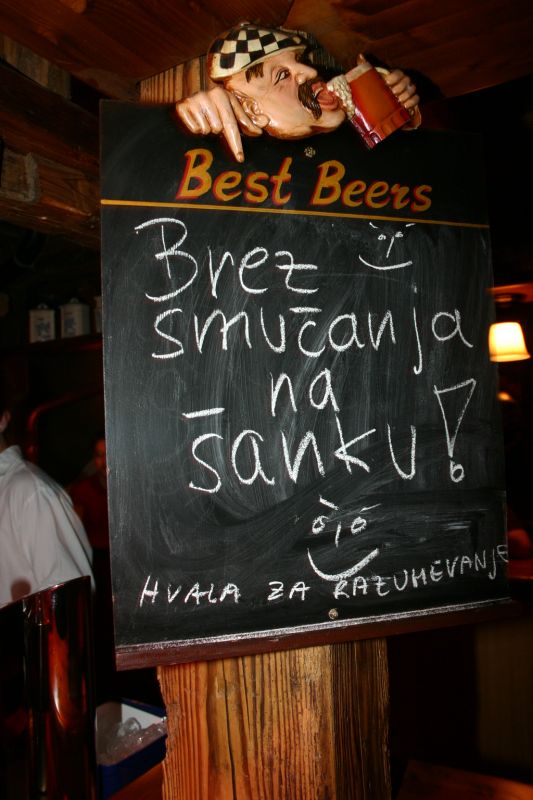 Best Beers
Brez
smučanja
na
šanku!
HVALA ZA RAZUMEVANJE